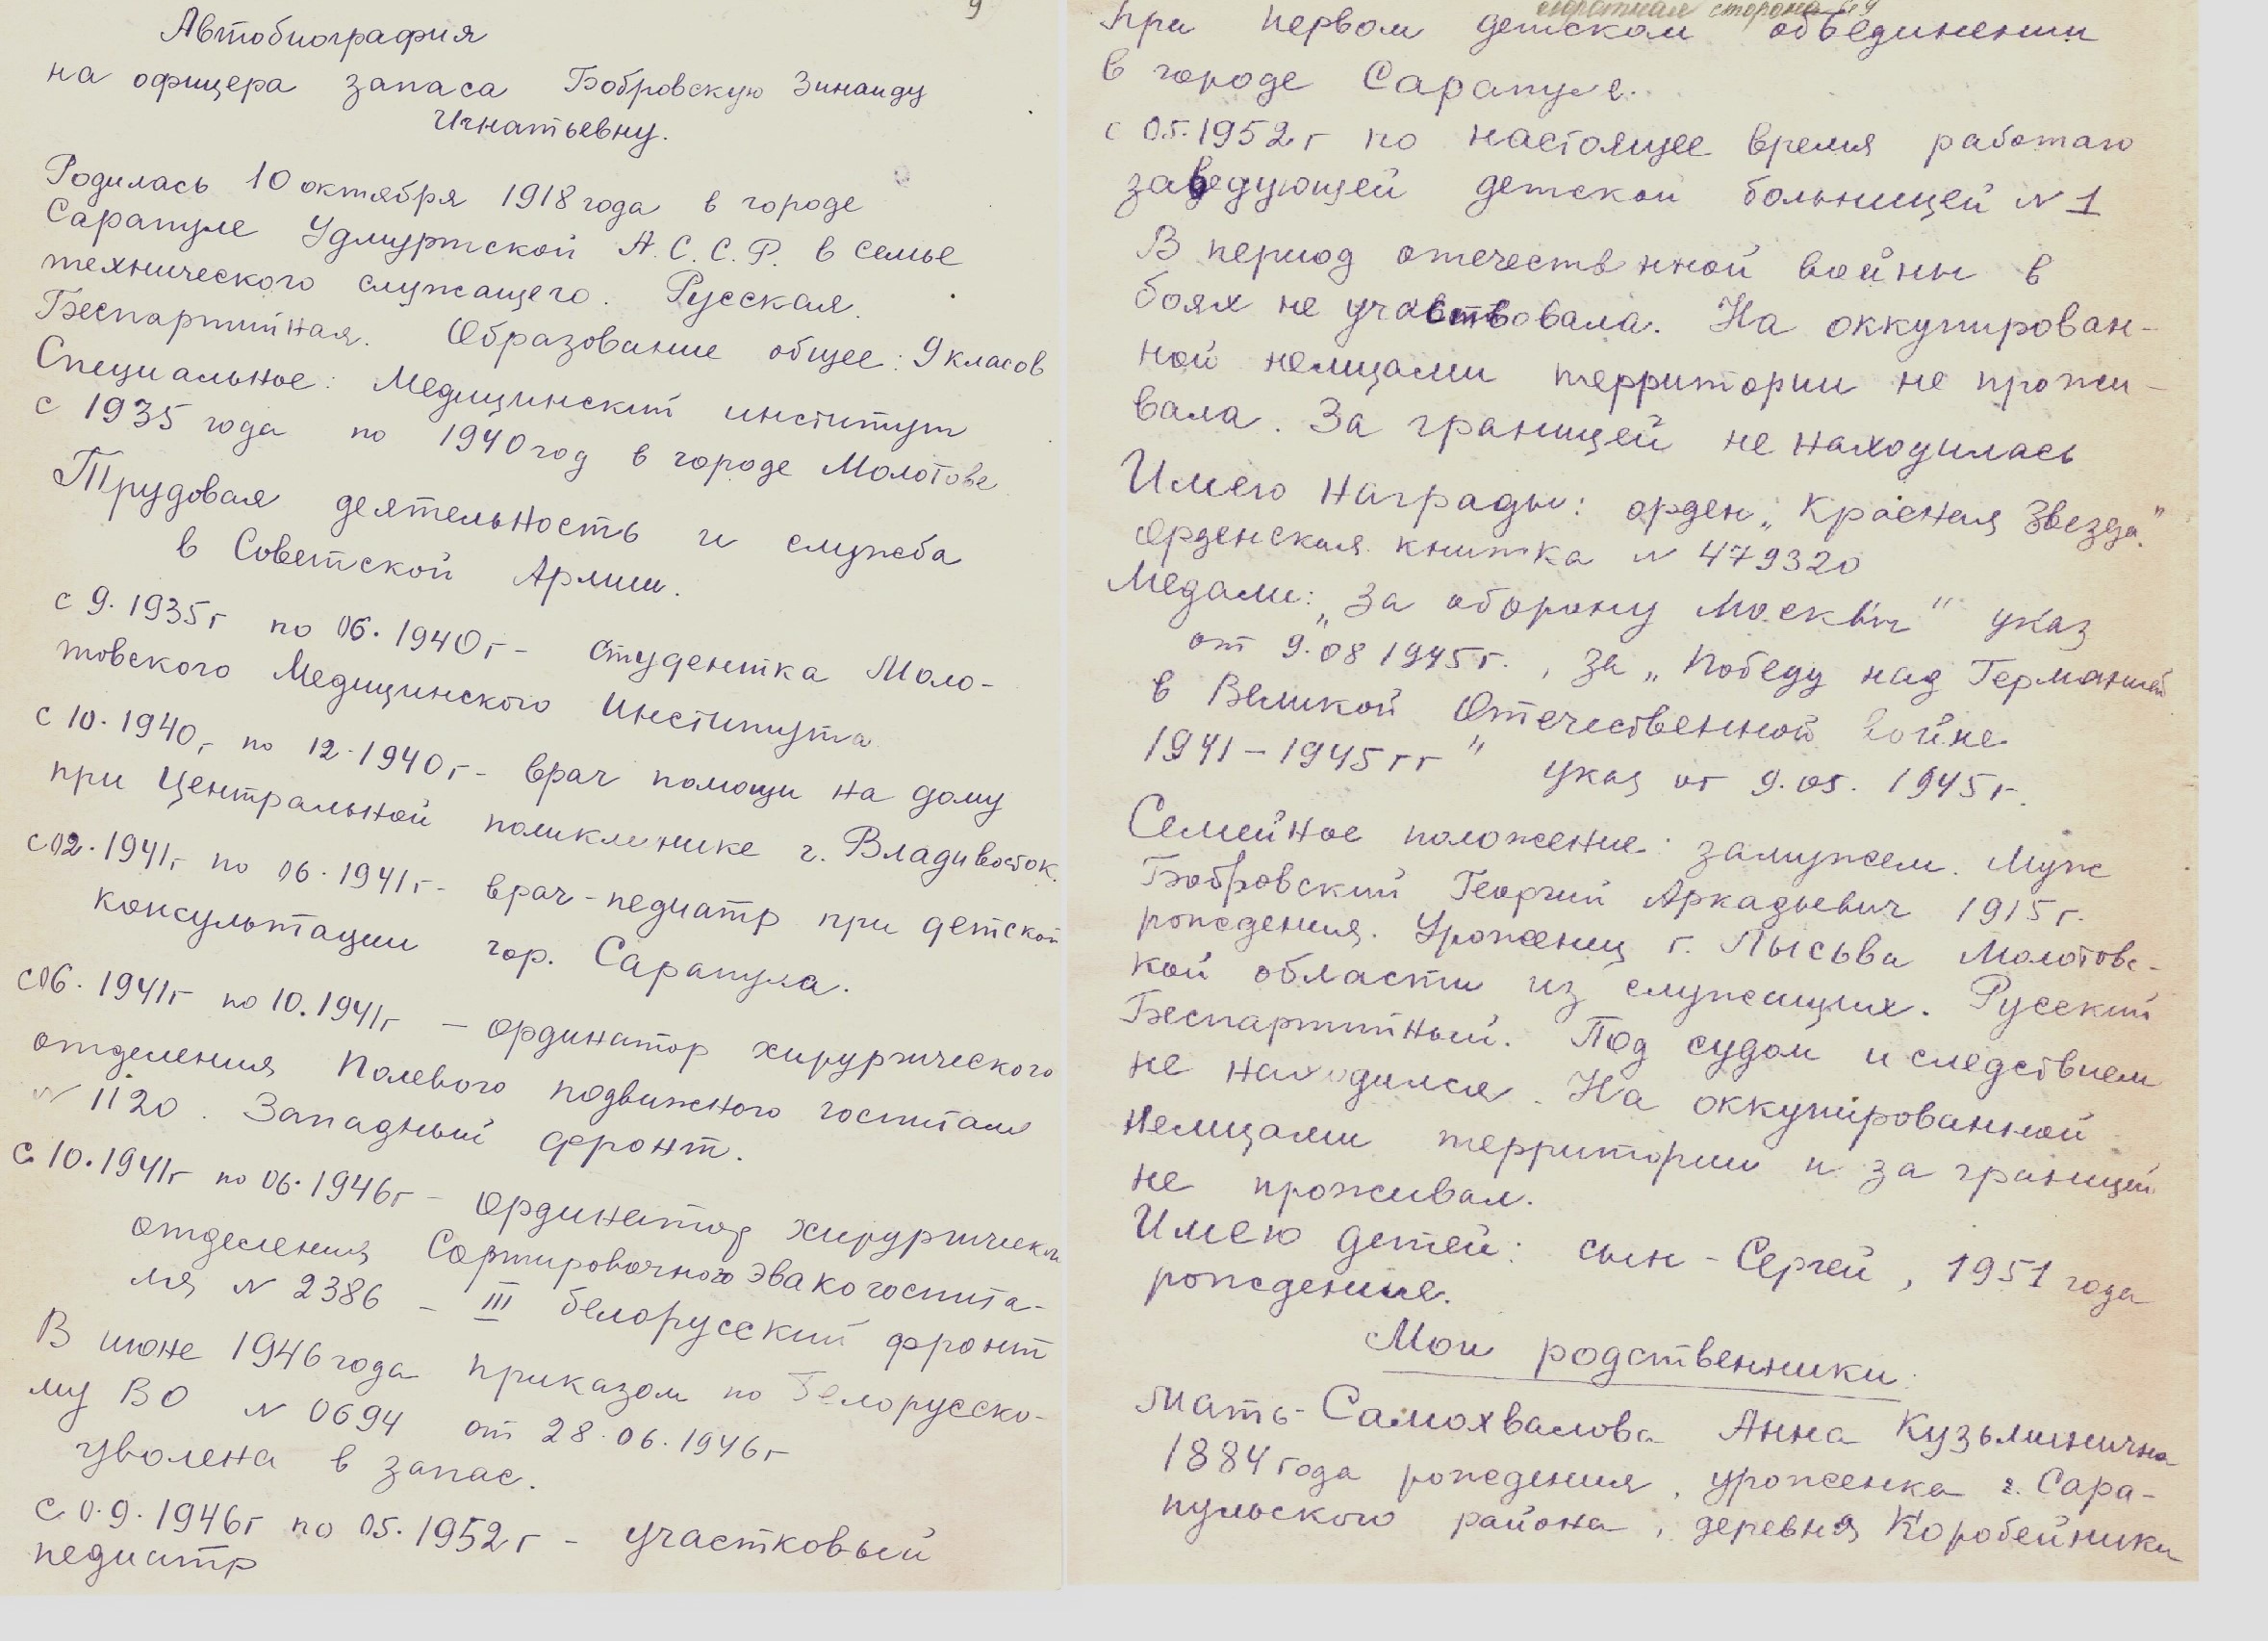 9
Автобиография
на офицера запаса Бобровскую Зинаиду
Игнатьевну.
Родилась 10 октября 1918 года в городе
Сарапуле Удмуртской А.С.С.Р. в семье
технического служащего. Русская.
Беспартийная. Образование общее: 9 класов
Специальное: Медицинский институт
с 1935 года по 1940 год в городе Молотове
Трудовая деятельность и служба
в Советской Армии.
с 9.1935г по 06.1940г – студентка Моло-
товского Медицинского Института
с 10.1940г по 12.1940г – врач помощи на дому
при Центральной поликлинике г. Владивосток.
с 02.1941г по 06.1941г – врач-педиатр при детской
консультации гор. Сарапула.
с 06.1941г по 10.1941г – ординатор хирургического
отделения Полевого подвижного госпиталя
N 1120. Западный фронт.
с 10.1941г по 06.1946г – ординатор хирургическ
отделения Сортировочного эвакогоспита-
ля N 2386 – III белорусский фронт
В июне 1946 года приказом по Белорусско-
му ВО N 0694 от 28.06.1946г
уволена в запас.
с 0.9.1946г по 05.1952г – участковый
педиатр
обратная сторона
при первом детском объединении
в городе Сарапуле.
с 05.1952г по настоящее время работаю
заведующей детской больницей N 1
В период отечествнной войны в
боях не участвовала. На оккупирован-
ной немцами территории не прожи-
вала. За границей не находилась
Имею награды: орден „Красная Звезда".
Орденская книжка N 479320
Медали: „За оборону Москвы" указ
от 9.08 1945г., за „Победу над Германией
в Великой Отечественной войне
1941–1945гг" указ от 9.05.1945г.
Семейное положение: замужем. Муж
Бобровский Георгий Аркадьевич 1915г.
рождения. Уроженец г. Лысьва Молотовс-
кой области из служащих. Русский
Беспартийный. Под судом и следствием
не находился. На оккупированной
немцами территории и за границей
не проживал.
Имею детей: сын – Сергей, 1951 года
рождения.
Мои родственники:
Мать – Самохвалова Анна Кузьминична
1884 года рождения, уроженка г. Сара-
пульского района, деревня Коробейники